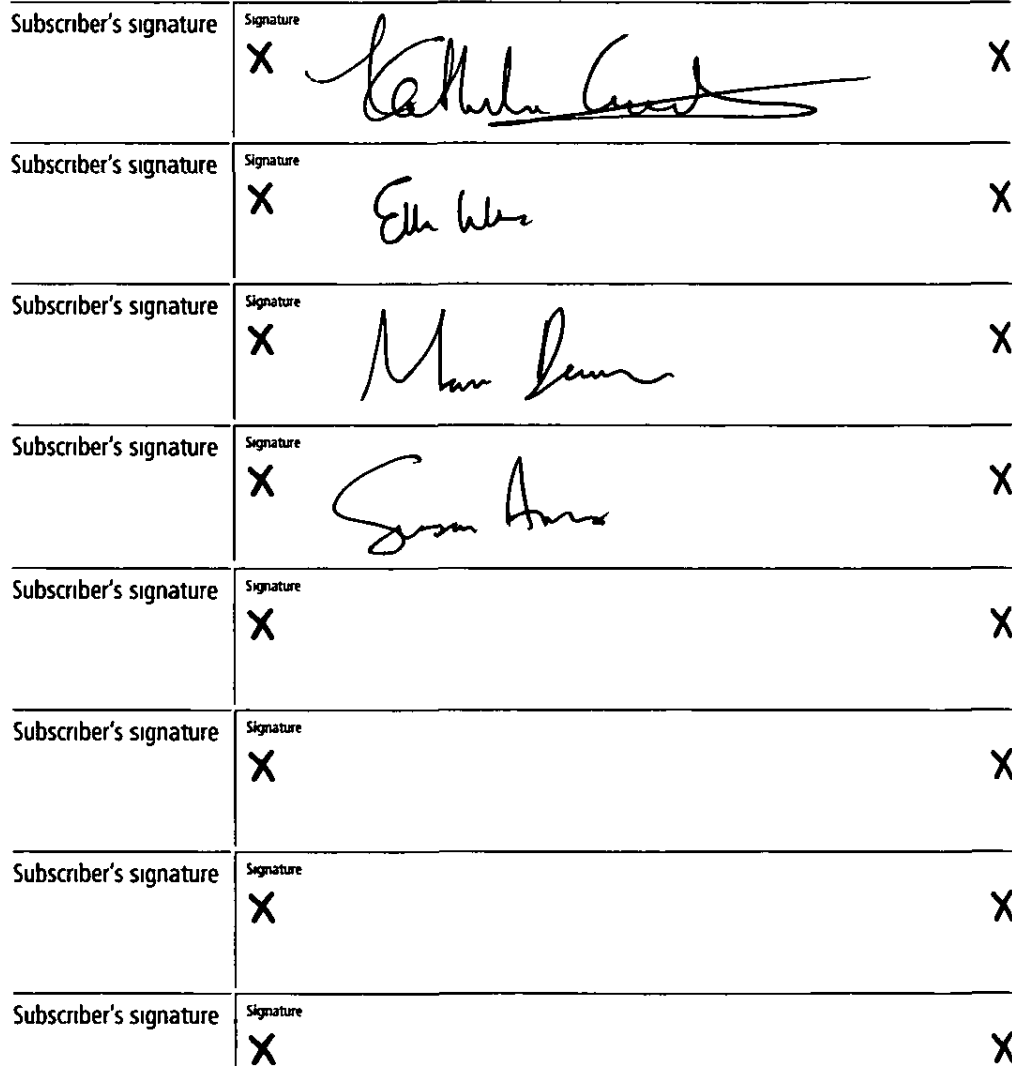 Subscriber's signature
Signature
X X
Subscriber's signature
Signature
X Ella X
Subscriber's signature
Signature
X X
Subscriber's signature
Signature
X Susan X
Subscriber's signature
Signature
X X
Subscriber's signature
Signature
X X
Subscriber's signature
Signature
X X
Subscriber's signature
Signature
X X